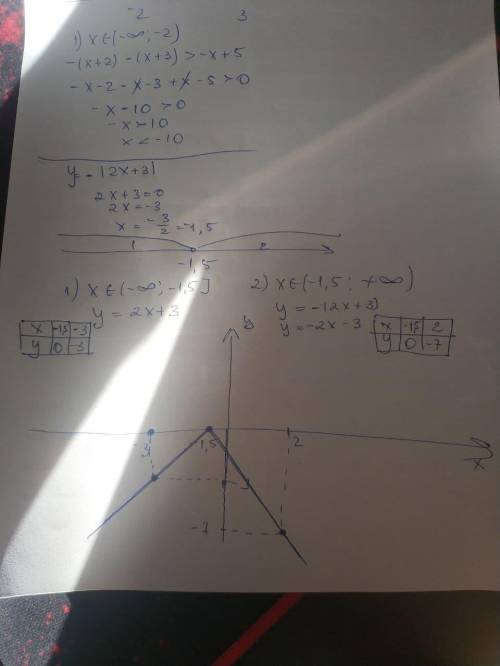 -2 3
1) x∈(-∞; -2)
-(x+2) - (x+3) > -x+5
-x-2-x-3+x-5>0
-x-10>0
-x>10
x<-10
y=-|2x+3|
2x+3=0
2x=-3
x=-3/2=-1,5
1 2
-1,5
1) x∈(-∞; -1,5] 2) x∈(-1,5; +∞)
y=2x+3 y=-(2x+3)
y=-2x-3
x -1,5 -3
y 0 -3
x -1,5 2
y 0 -7
y
-3 1,5 2
x
-3
-7